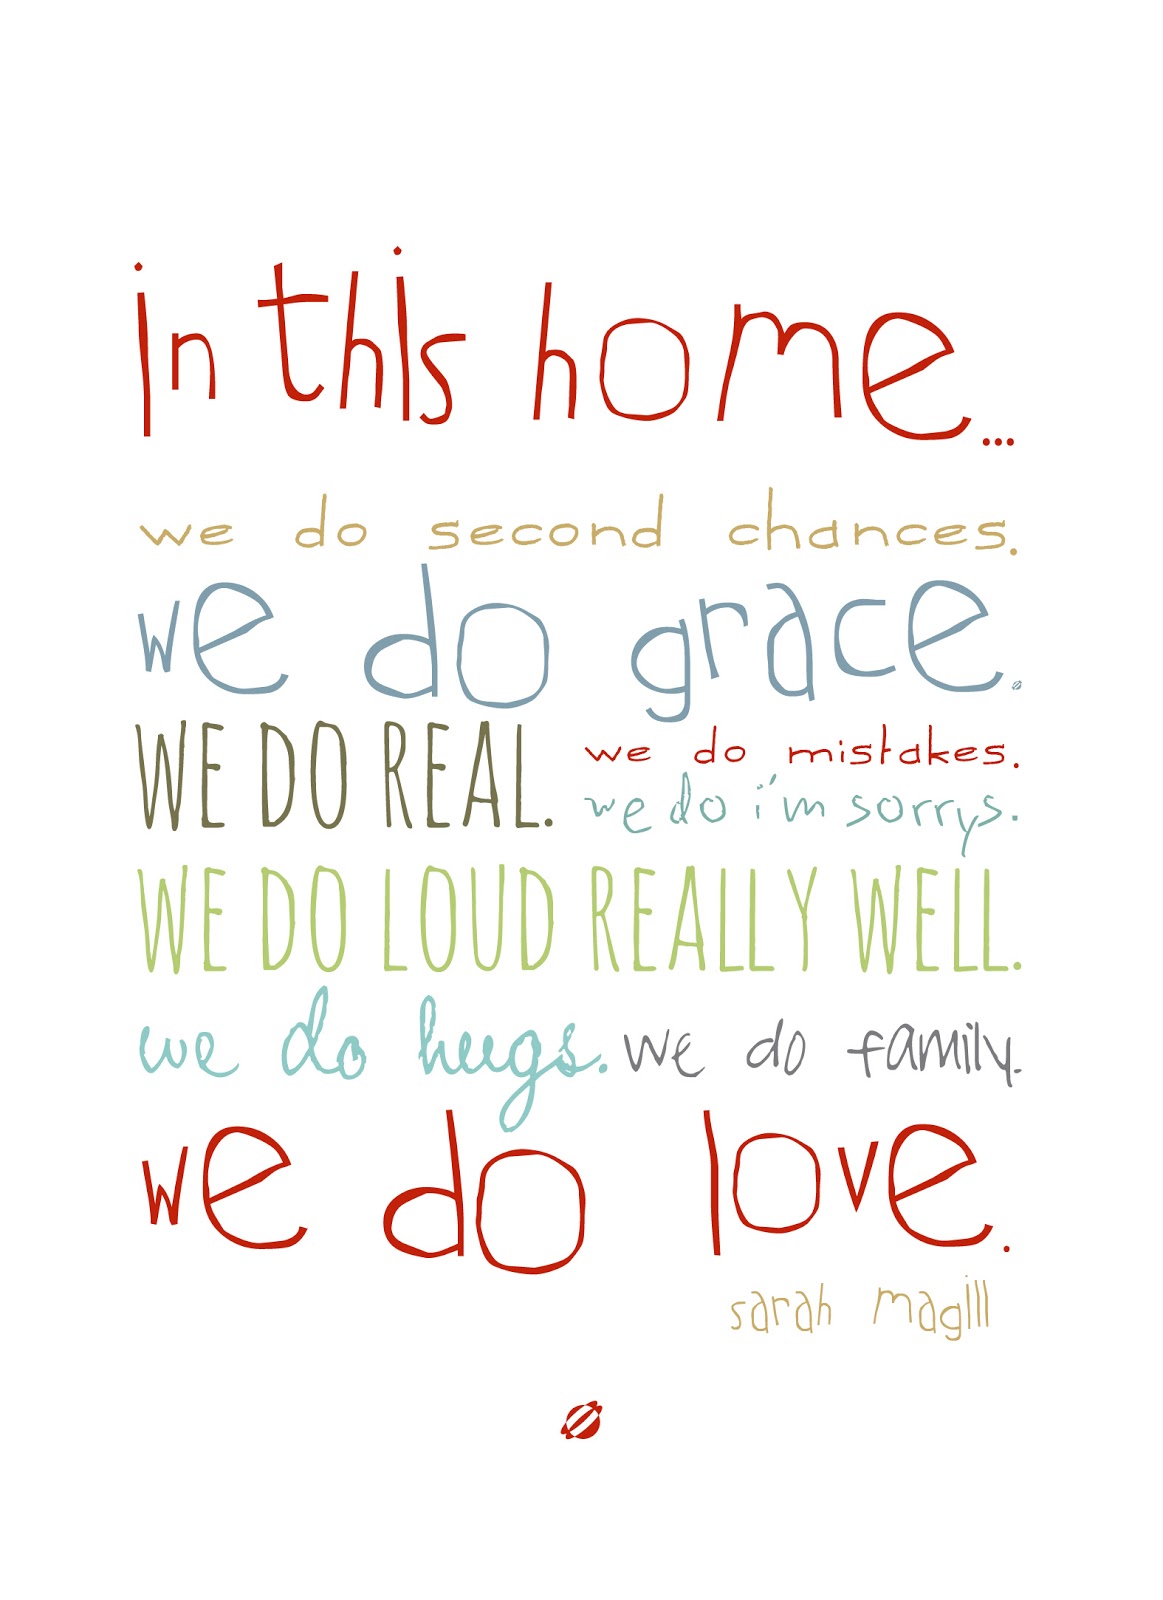 in this home...
we do second chances.
we do grace.
WE DO REAL.
we do mistakes.
we do i'm sorrys.
WE DO LOUD REALLY WELL.
we do hugs. we do family.
we do love.
sarah magill